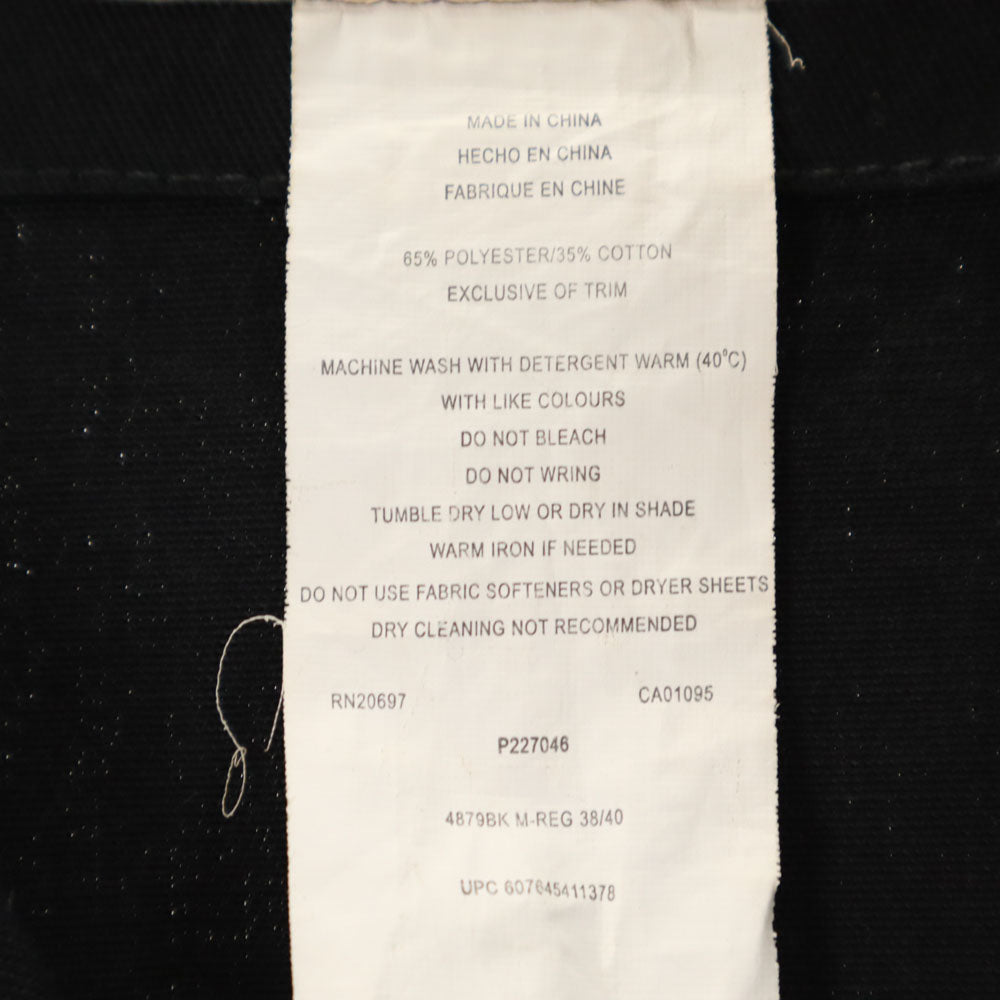 MADE IN CHINA
HECHO EN CHINA
FABRIQUE EN CHINE
65% POLYESTER/35% COTTON
EXCLUSIVE OF TRIM
MACHINE WASH WITH DETERGENT WARM (40°C)
WITH LIKE COLOURS
DO NOT BLEACH
DO NOT WRING
TUMBLE DRY LOW OR DRY IN SHADE
WARM IRON IF NEEDED
DO NOT USE FABRIC SOFTENERS OR DRYER SHEETS
DRY CLEANING NOT RECOMMENDED
RN20697 CA01095
P227046
4879BK M-REG 38/40
UPC 607645411378